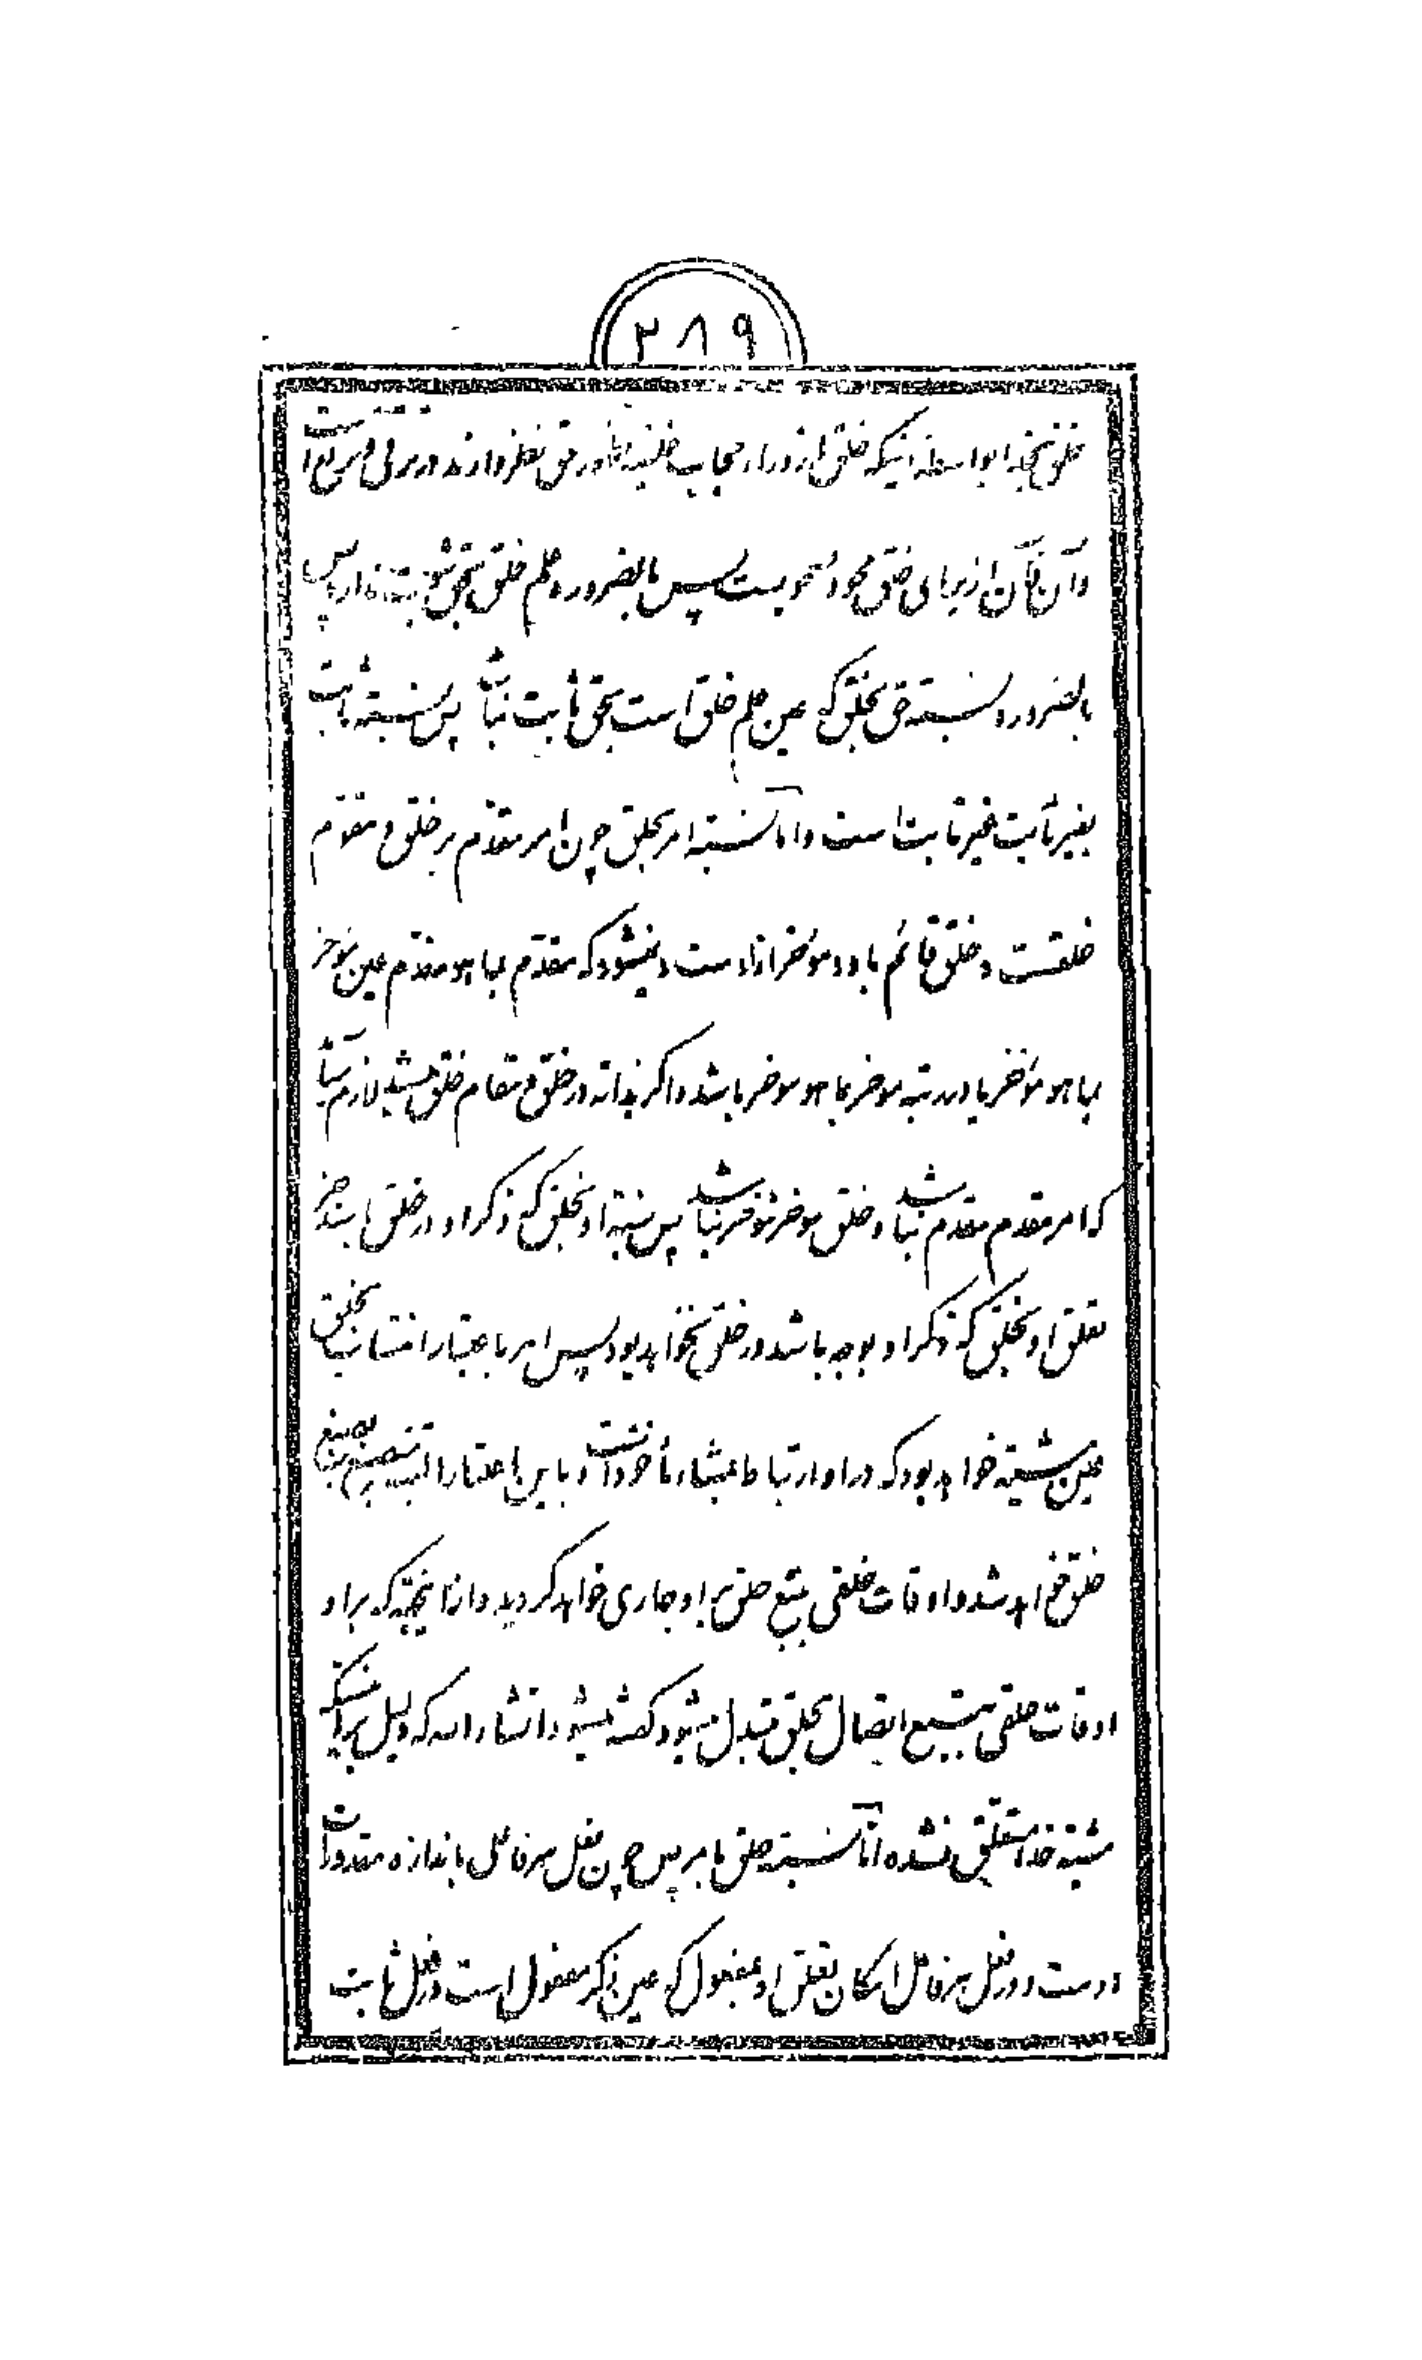 ٢٨٩
خلق بحق بواسطه اینکه خلق از وراء حجاب خلقیه خود در حق نظر دارند و در ترقی و سیر است
و آن فآن از برای خلق محو و صحو یست پس بالضروره علم خلق بحق ثبوت ندارد پس
بالضروره نسبته حق بخلق که عین علم خلق است بحق ثابت نباشد پس نسبته ثابت
بغیر ثابت غیر ثابت است و اما نسبته امر بخلق چون امر مقدم بر خلق و مقوم
خلقست و خلق قائم باو و مؤخر از اوست و نمیشود که مقدم بما هو مقدم عین مؤخر
بما هو مؤخر یا در رتبه مؤخر بما هو مؤخر باشد و اگر بذاته در خلق و مقام خلق باشد لازم میآید
که امر مقدم مقدم نباشد و خلق مؤخر مؤخر نباشد پس نسبته او بخلق که ذکر او در خلق باشد و جز
تعلق او بخلق که ذکر او بوجه باشد در خلق نخواهد بود پس امر باعتبار انتساب بخلق
عین مشیته خواهد بود که در او ارتباط بمشاء مأخوذ است و باین اعتبار البته منصبغ بصبغ
خلق خواهد شد و اوقات خلقی بتبع خلق بر او جاری خواهد گردید و از اینجهته که بر او
اوقات خلقی بتبع اتصال بخلق متبدل میشود گفته میشود انشاء الله که دلیل بر آنستکه
مشیته خدا متعلق نشده اما نسبته خلق بامر پس چون فعل هر فاعل باندازه مقدورات
اوست و در فعل هر فاعل امکان تعلق او بمفعول که عین ذکر مفعول است در فعل ثابت